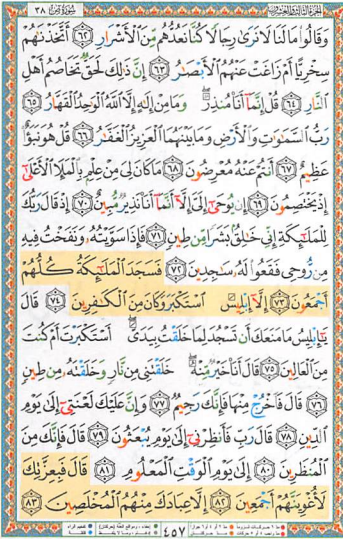 الجزء الثالث والعشرون سورة ص ٣٨
وَقَالُوا۟ مَا لَنَا لَا نَرَىٰ رِجَالًا كُنَّا نَعُدُّهُم مِّنَ ٱلْأَشْرَارِ ٦٢ أَتَّخَذْنَٰهُمْ
سِخْرِيًّا أَمْ زَاغَتْ عَنْهُمُ ٱلْأَبْصَٰرُ ٦٣ إِنَّ ذَٰلِكَ لَحَقٌّ تَخَاصُمُ أَهْلِ
ٱلنَّارِ ٦٤ قُلْ إِنَّمَآ أَنَا۠ مُنذِرٌ ۖ وَمَا مِنْ إِلَٰهٍ إِلَّا ٱللَّهُ ٱلْوَٰحِدُ ٱلْقَهَّارُ ٦٥
رَبُّ ٱلسَّمَٰوَٰتِ وَٱلْأَرْضِ وَمَا بَيْنَهُمَا ٱلْعَزِيزُ ٱلْغَفَّٰرُ ٦٦ قُلْ هُوَ نَبَؤٌا۟
عَظِيمٌ ٦٧ أَنتُمْ عَنْهُ مُعْرِضُونَ ٦٨ مَا كَانَ لِىَ مِنْ عِلْمٍۭ بِٱلْمَلَإِ ٱلْأَعْلَىٰٓ
إِذْ يَخْتَصِمُونَ ٦٩ إِن يُوحَىٰٓ إِلَىَّ إِلَّآ أَنَّمَآ أَنَا۠ نَذِيرٌ مُّبِينٌ ٧٠ إِذْ قَالَ رَبُّكَ
لِلْمَلَٰٓئِكَةِ إِنِّى خَٰلِقٌۢ بَشَرًا مِّن طِينٍ ٧١ فَإِذَا سَوَّيْتُهُۥ وَنَفَخْتُ فِيهِ
مِن رُّوحِى فَقَعُوا۟ لَهُۥ سَٰجِدِينَ ٧٢ فَسَجَدَ ٱلْمَلَٰٓئِكَةُ كُلُّهُمْ
أَجْمَعُونَ ٧٣ إِلَّآ إِبْلِيسَ ٱسْتَكْبَرَ وَكَانَ مِنَ ٱلْكَٰفِرِينَ ٧٤ قَالَ
يَٰٓإِبْلِيسُ مَا مَنَعَكَ أَن تَسْجُدَ لِمَا خَلَقْتُ بِيَدَىَّ ۖ أَسْتَكْبَرْتَ أَمْ كُنتَ
مِنَ ٱلْعَالِينَ ٧٥ قَالَ أَنَا۠ خَيْرٌ مِّنْهُ ۖ خَلَقْتَنِى مِن نَّارٍ وَخَلَقْتَهُۥ مِن طِينٍ
٧٦ قَالَ فَٱخْرُجْ مِنْهَا فَإِنَّكَ رَجِيمٌ ٧٧ وَإِنَّ عَلَيْكَ لَعْنَتِىٓ إِلَىٰ يَوْمِ
ٱلدِّينِ ٧٨ قَالَ رَبِّ فَأَنظِرْنِىٓ إِلَىٰ يَوْمِ يُبْعَثُونَ ٧٩ قَالَ فَإِنَّكَ مِنَ
ٱلْمُنظَرِينَ ٨٠ إِلَىٰ يَوْمِ ٱلْوَقْتِ ٱلْمَعْلُومِ ٨١ قَالَ فَبِعِزَّتِكَ
لَأُغْوِيَنَّهُمْ أَجْمَعِينَ ٨٢ إِلَّا عِبَادَكَ مِنْهُمُ ٱلْمُخْلَصِينَ ٨٣
٤٥٧